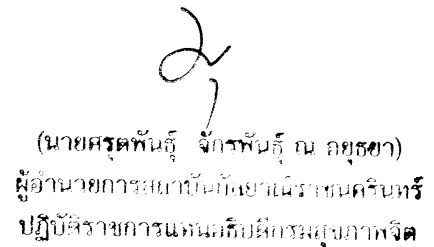 (นายศรุตพันธุ์ จักรพันธุ์ ณ อยุธยา)
ผู้อำนวยการสถาบันกัลยาณ์ราชนครินทร์
ปฏิบัติราชการแทนอธิบดีกรมสุขภาพจิต